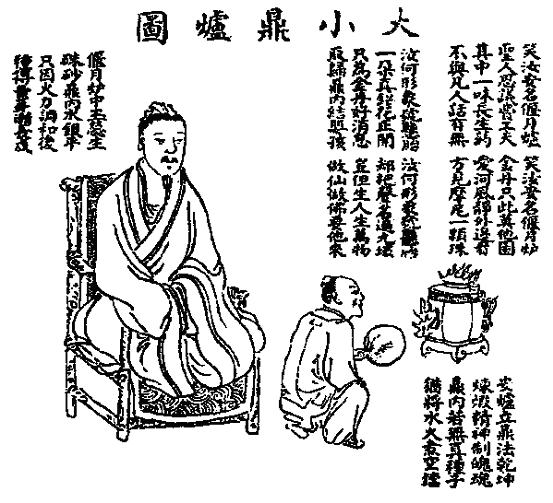 大小鼎爐圖
笑汝安名偃月爐
聖人思議費工夫
其中一味長生藥
不與凡人話有無
笑汝安名偃月炉
金丹只此莫他圖
愛河風靜
方見摩尼一顆珠
汝何形象號懸胎
一朵真鉛花正開
只為金丹好消息
取歸鼎內結嬰孩
汝何形象號懸胎
却把聲名遍九垓
豈但生人生萬物
做仙做佛要他來
偃月炉中玉蕊生
硃砂鼎內水銀平
只因火力調和後
種得黃芽漸長成
安爐立鼎法乾坤
煉煅精神制魄魂
鼎內若無真種子
猶將水火煮空鐺